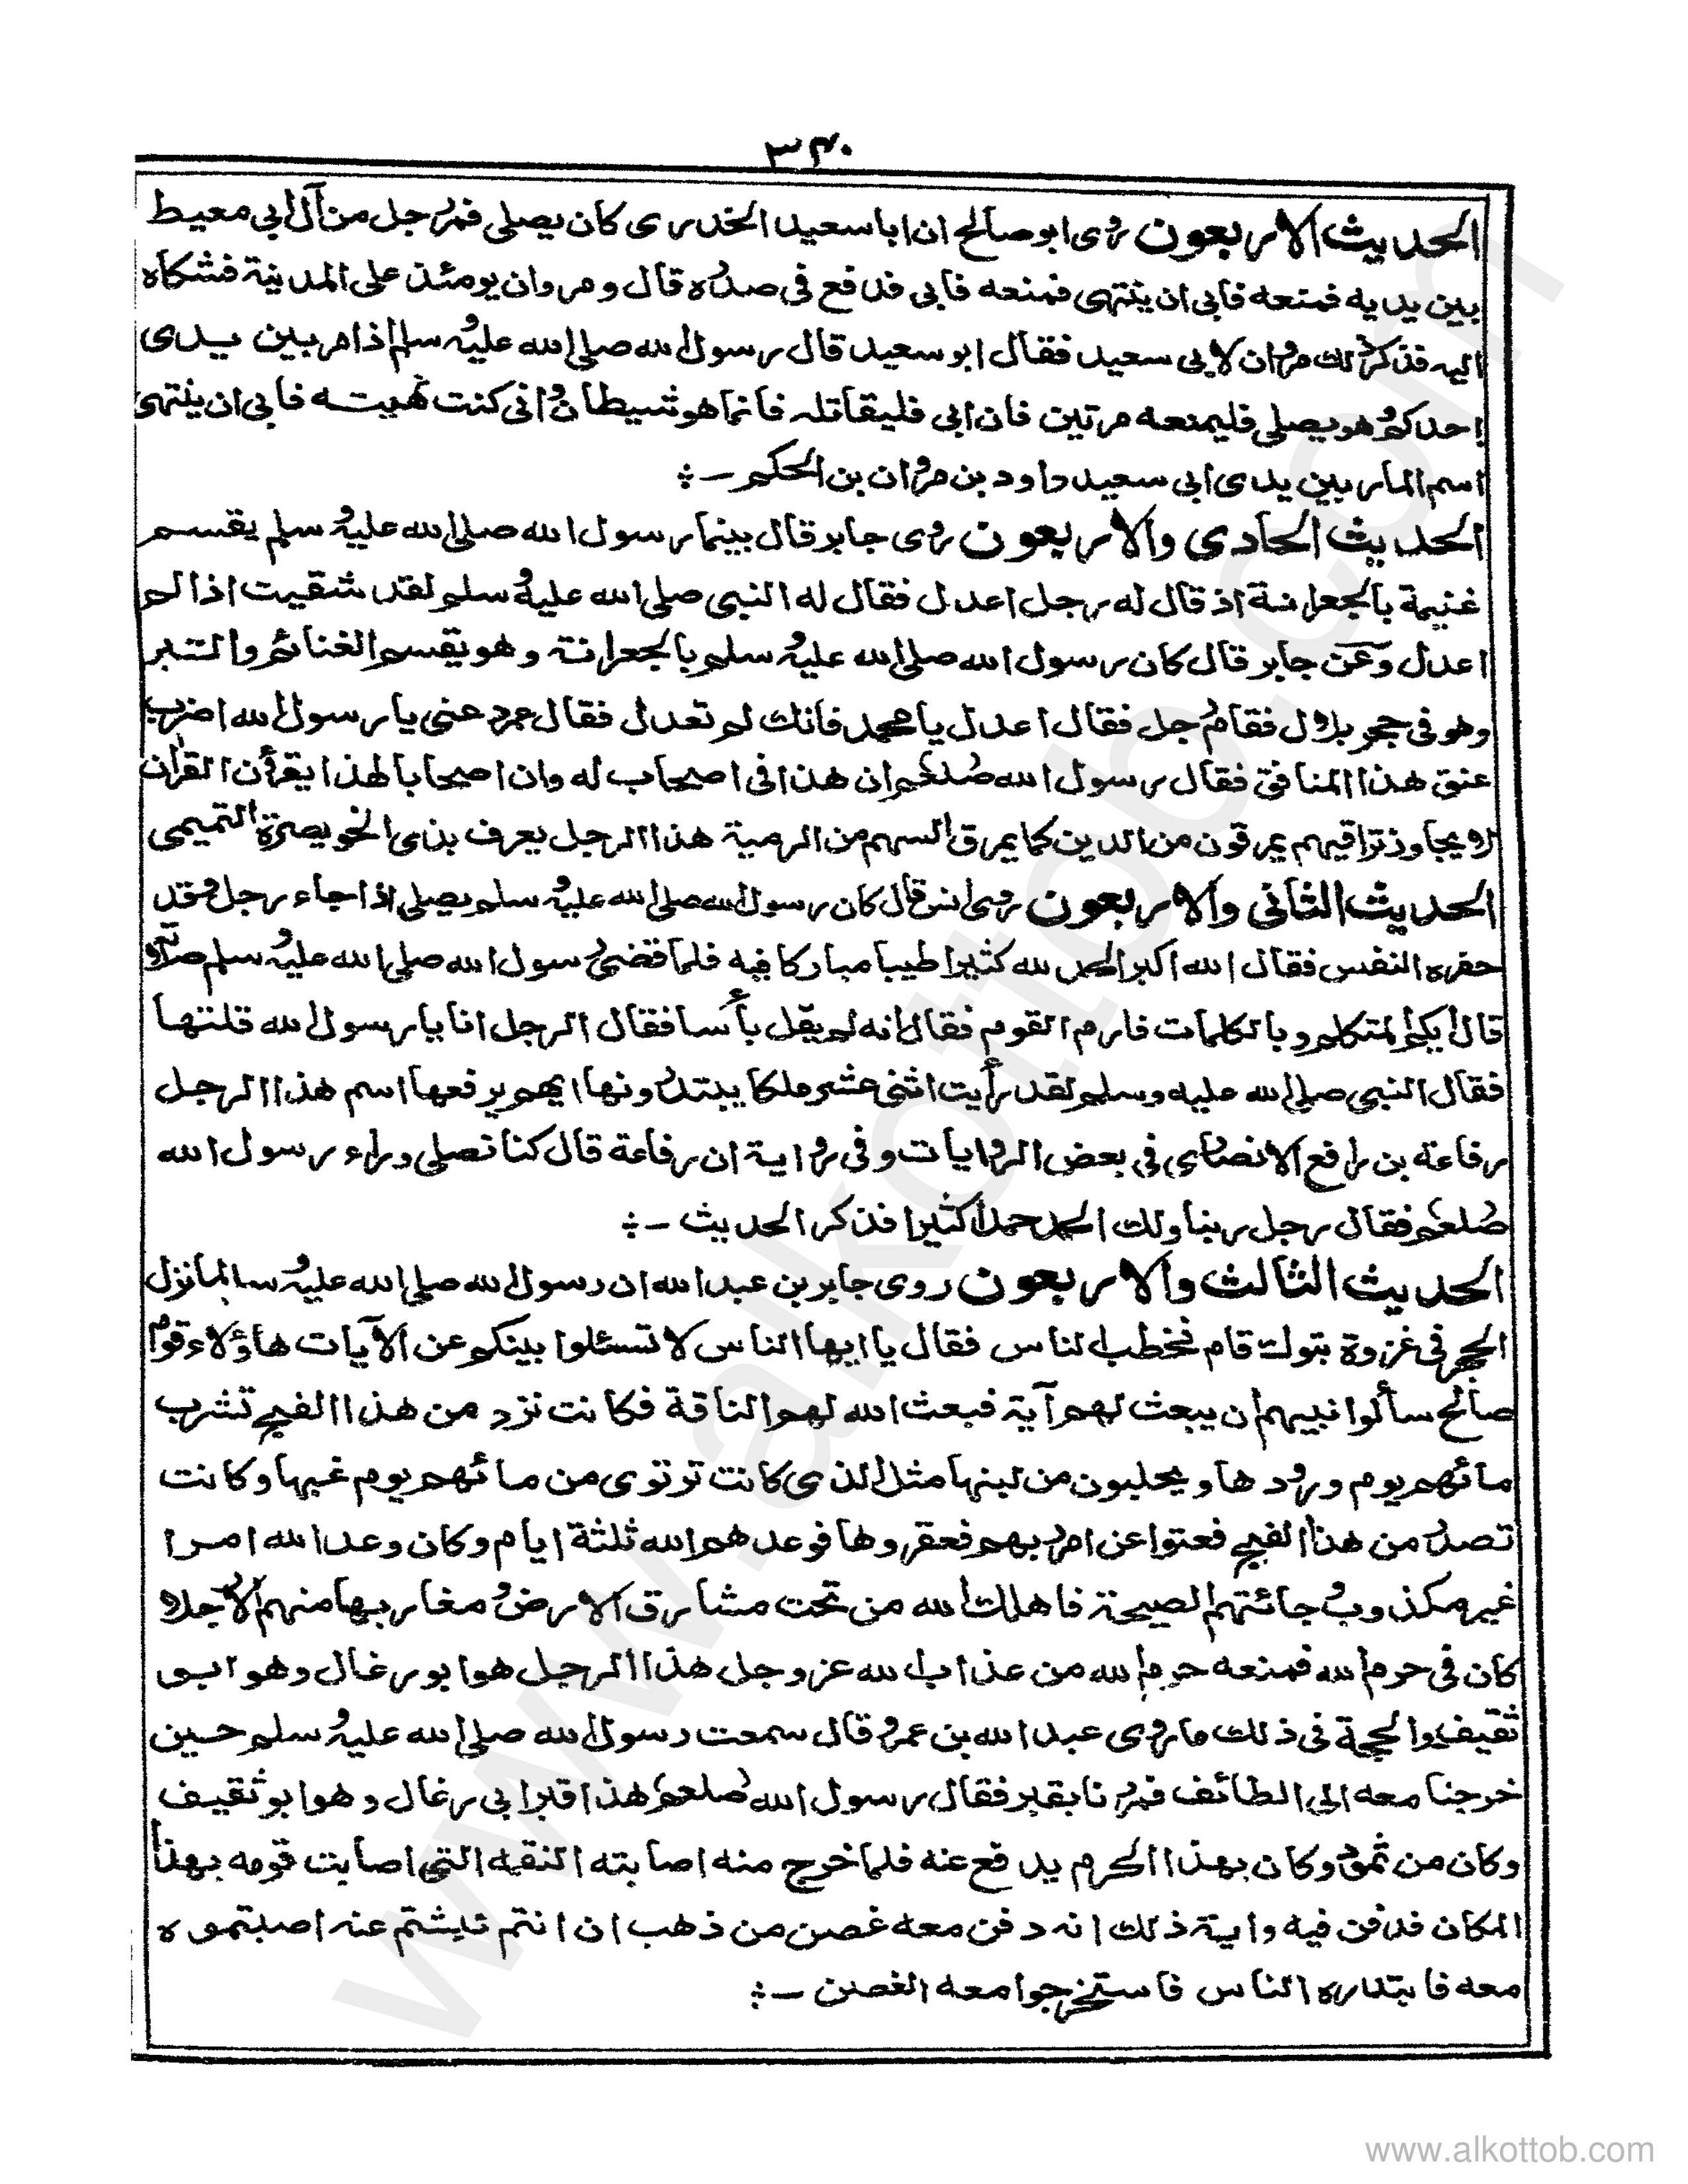 ٣٤٠
الحديث الاربعون روى ابو صالح ان ابا سعيد الخدرى كان يصلى فمر رجل من آل ابي معيط
بين يديه فمنعه فابى ان ينتهى فمنعه فابى فدفع فى صدره قال و مروان يومئذ على المدينة فشكاه
اليه فذكر ذلك مروان لابى سعيد فقال ابو سعيد قال رسول الله صلى الله عليه و سلم اذا مر بين يدى
احدكم و هو يصلى فليمنعه مرتين فان ابى فليقاتله فانما هو شيطان و انى كنت نهيته فابى ان ينتهى
اسم المار بين يدى ابى سعيد داود بن مروان بن الحكم ـ
الحديث الحادى والاربعون روى جابر قال بينما رسول الله صلى الله عليه و سلم يقسم
غنيمة بالجعرانة اذ قال له رجل اعدل فقال له النبى صلى الله عليه و سلم لقد شقيت اذا لم
اعدل وعن جابر قال كان رسول الله صلى الله عليه و سلم بالجعرانة و هو يقسم الغنائم والتبر
وهو فى حجر بلال فقام رجل فقال اعدل يا محمد فانك لم تعدل فقال عمر دعنى يا رسول الله اضرب
عنق هذا المنافق فقال رسول الله صلعم ان هذا فى اصحاب له وان اصحابا لهذا يقرأن القرآن
لا يجاوز تراقيهم يمرقون من الدين كما يمرق السهم من الرمية هذا الرجل يعرف بذى الخويصرة التميمى
الحديث الثانى والاربعون روى انس قال كان رسول الله صلى الله عليه و سلم يصلى اذا جاء رجل وقد
حفره النفس فقال الله اكبر الحمد لله كثيرا طيبا مباركا فيه فلما قضى رسول الله صلى الله عليه و سلم صلاته
قال ايكم المتكلم و بالكلمات فارم القوم فقال انه لم يقل بأسا فقال الرجل انا يا رسول الله قلتها
فقال النبى صلى الله عليه وسلم لقد رأيت اثنى عشر ملكا يبتدرونها ايهم يرفعها اسم هذا الرجل
رفاعة بن رافع الانصارى فى بعض الروايات و فى رواية ان رفاعة قال كنا نصلى وراء رسول الله
صلعم فقال رجل ربنا ولك الحمد حمدا كثيرا فذكر الحديث ـ
الحديث الثالث والاربعون روى جابر بن عبد الله ان رسول الله صلى الله عليه و سلم لما نزل
الحجر فى غزوة تبوك قام فخطب الناس فقال يا ايها الناس لا تسئلوا بينكم عن الآيات هاؤلاء قوم
صالح سألوا نبيهم ان يبعث لهم آية فبعث الله لهم الناقة فكانت ترد من هذا الفج تشرب
مائهم يوم ورودها و يحلبون من لبنها مثل الذى كانت ترتوى من مائهم يوم غبها و كانت
تصدر من هذا الفج فعتوا عن امر ربهم فعقروها فوعدهم الله ثلثة ايام و كان وعد الله امرا
غير مكذوب و جائتهم الصيحة فاهلك الله من تحت مشارق الارض و مغاربها منهم الا رجلا
كان فى حرم الله فمنعه حرم الله من عذاب الله عز و جل هذا الرجل هو ابو رغال و هو ابو
ثقيف والحجة فى ذلك ما روى عبد الله بن عمرو قال سمعت رسول الله صلى الله عليه و سلم حين
خرجنا معه الى الطائف فمررنا بقبر فقال رسول الله صلعم هذا قبر ابى رغال و هو ابو ثقيف
و كان من ثمود و كان بهذا الحرم يدفع عنه فلما خرج منه اصابته النقمه التى اصابت قومه بهذا
المكان فدفن فيه و اية ذلك انه دفن معه غصن من ذهب ان انتم نبشتم عنه اصبتموه
معه فابتدره الناس فاستخرجوا معه الغصن ـ
www.alkottob.com
www.alkottob.com